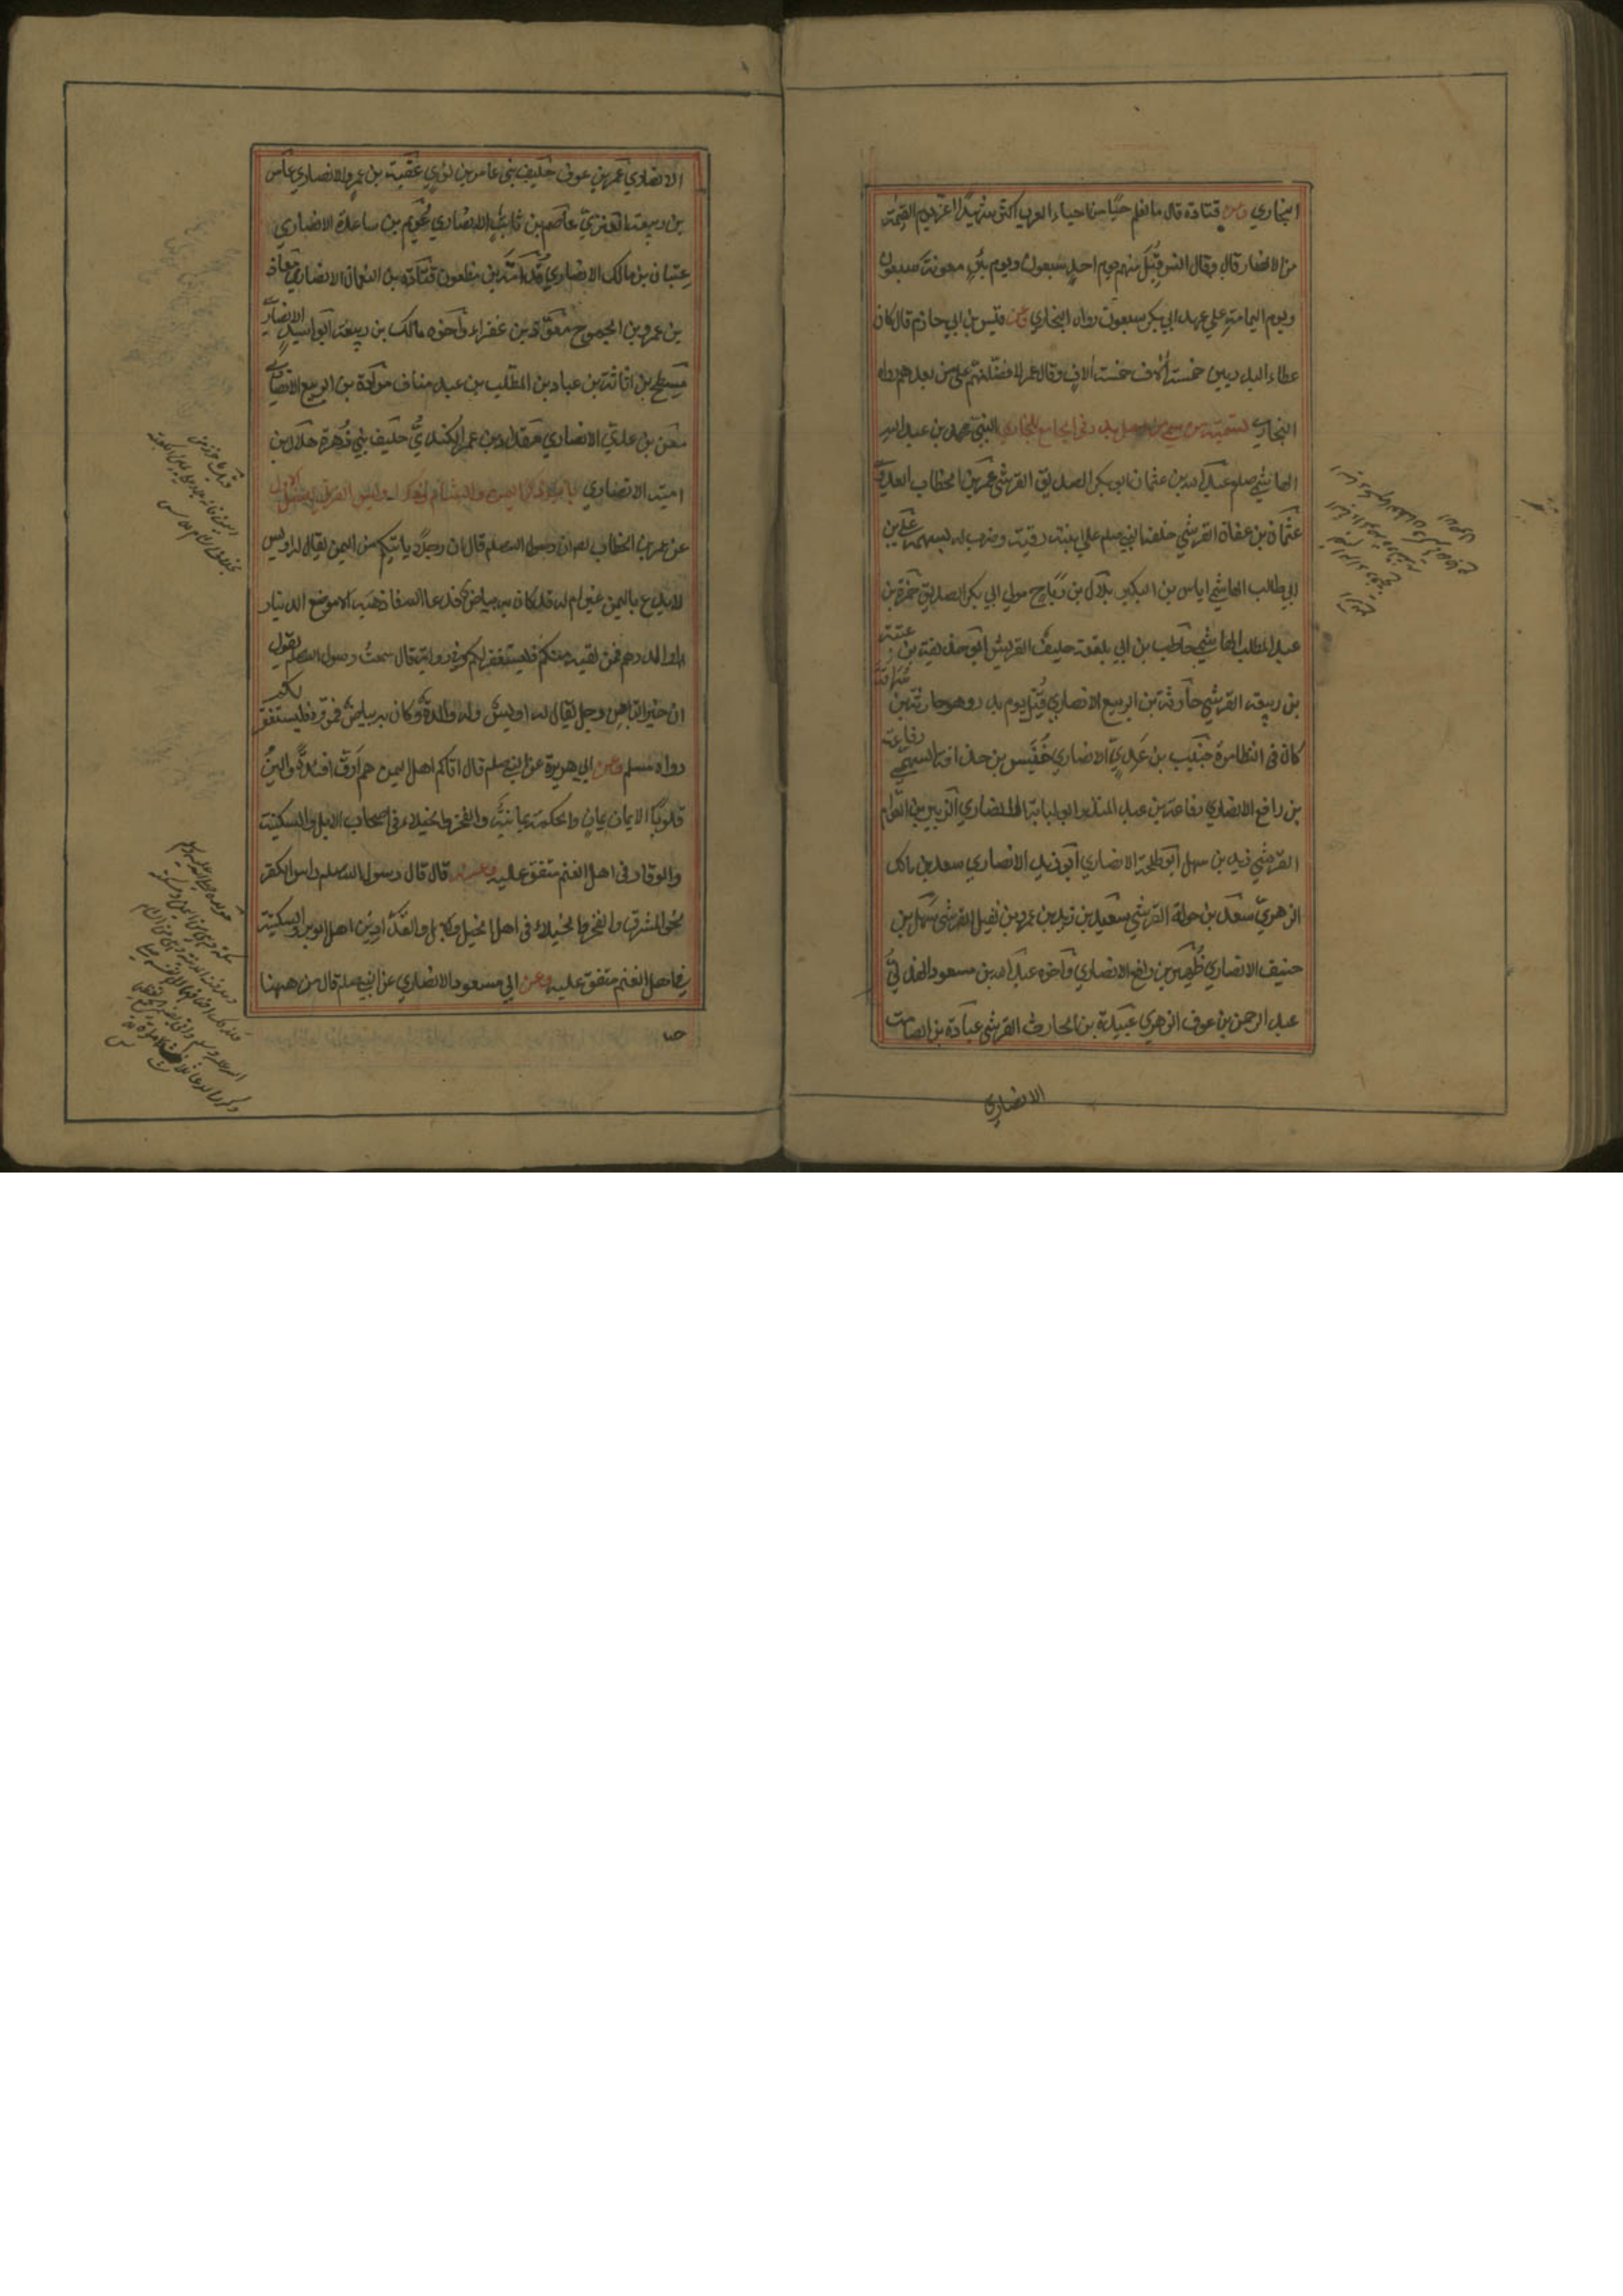 البخاري وعن قتادة قال ما نعلم حيا من احياء العرب اكثر شهيدا اعز يوم القيمة
من الانصار قال وقال انس قتل منهم يوم احد سبعون ويوم بئر معونة سبعون
ويوم اليمامة علي عهد ابي بكر سبعون رواه البخاري وعن قيس بن ابي حازم قال كان
عطاء البدريين خمسة آلاف خمسة آلاف وقال عمر لافضلنهم علي من بعدهم رواه
البخاري تسمية من سمي من اهل بدر في الجامع للبخاري النبي محمد بن عبد الله
الهاشمي صلعم عبد الله بن عثمان ابو بكر الصديق القرشي عمر بن الخطاب العدوي
عثمان بن عفان القرشي خلفه النبي صلعم علي ابنته رقية وضرب له بسهمه علي بن
ابي طالب الهاشمي اياس بن البكير بلال بن رباح مولي ابي بكر الصديق حمزة بن
عبد المطلب الهاشمي حاطب بن ابي بلتعة حليف القريش ابو حذيفة بن عتبة
بن ربيعة القرشي حارثة بن الربيع الانصاري قتل يوم بدر وهو حارثة بن سراقة
كان في النظارة خبيب بن عدي الانصاري خنيس بن حذافة السهمي رفاعة
بن رافع الانصاري رفاعة بن عبد المنذر ابو لبابة الانصاري الزبير بن العوام
القرشي زيد بن سهل ابو طلحة الانصاري ابو زيد الانصاري سعد بن مالك
الزهري سعد بن خولة القرشي سعيد بن زيد بن عمرو بن نفيل القرشي سهل بن
حنيف الانصاري ظهير بن رافع الانصاري واخوه عبد الله بن مسعود الهذلي
عبد الرحمن بن عوف الزهري عبيدة بن الحارث القرشي عبادة بن الصامت
الانصاري
الانصاري عمرو بن عوف حليف بني عامر بن لوي عقبة بن عمرو الانصاري عامر
بن ربيعة العنزي عاصم بن ثابت الانصاري عويم بن ساعدة الانصاري
عتبان بن مالك الانصاري قدامة بن مظعون قتادة بن النعمان الانصاري معاذ
بن عمرو بن الجموح معوذ بن عفراء واخوه مالك بن ربيعة ابو اسيد الانصاري
مسطح بن اثاثة بن عباد بن المطلب بن عبد مناف مرارة بن الربيع الانصاري
معن بن عدي الانصاري مقداد بن عمرو الكندي حليف بني زهرة هلال بن
امية الانصاري باب ذكر اليمن والشام وذكر اويس القرني الاول
عن عمر بن الخطاب ان رسول الله صلعم قال ان رجلا ياتيكم من اليمن يقال له اويس
لا يدع باليمن غير ام له قد كان به بياض فدعا الله فاذهبه الا موضع الدينار
او الدرهم فمن لقيه منكم فليستغفر لكم وفي رواية قال سمعت رسول الله صلعم يقول
ان خير التابعين رجل يقال له اويس وله والدة وكان به بياض فمروه فليستغفر لكم
رواه مسلم وعن ابي هريرة عن النبي صلعم قال اتاكم اهل اليمن هم ارق افئدة والين
قلوبا الايمان يمان والحكمة يمانية والفخر والخيلاء في اصحاب الابل والسكينة
والوقار في اهل الغنم متفق عليه وعنه قال قال رسول الله صلعم راس الكفر
نحو المشرق والفخر والخيلاء في اهل الخيل والابل والفدادين اهل الوبر والسكينة
في اهل الغنم متفق عليه وعن ابي مسعود الانصاري عن النبي صلعم قال من ههنا